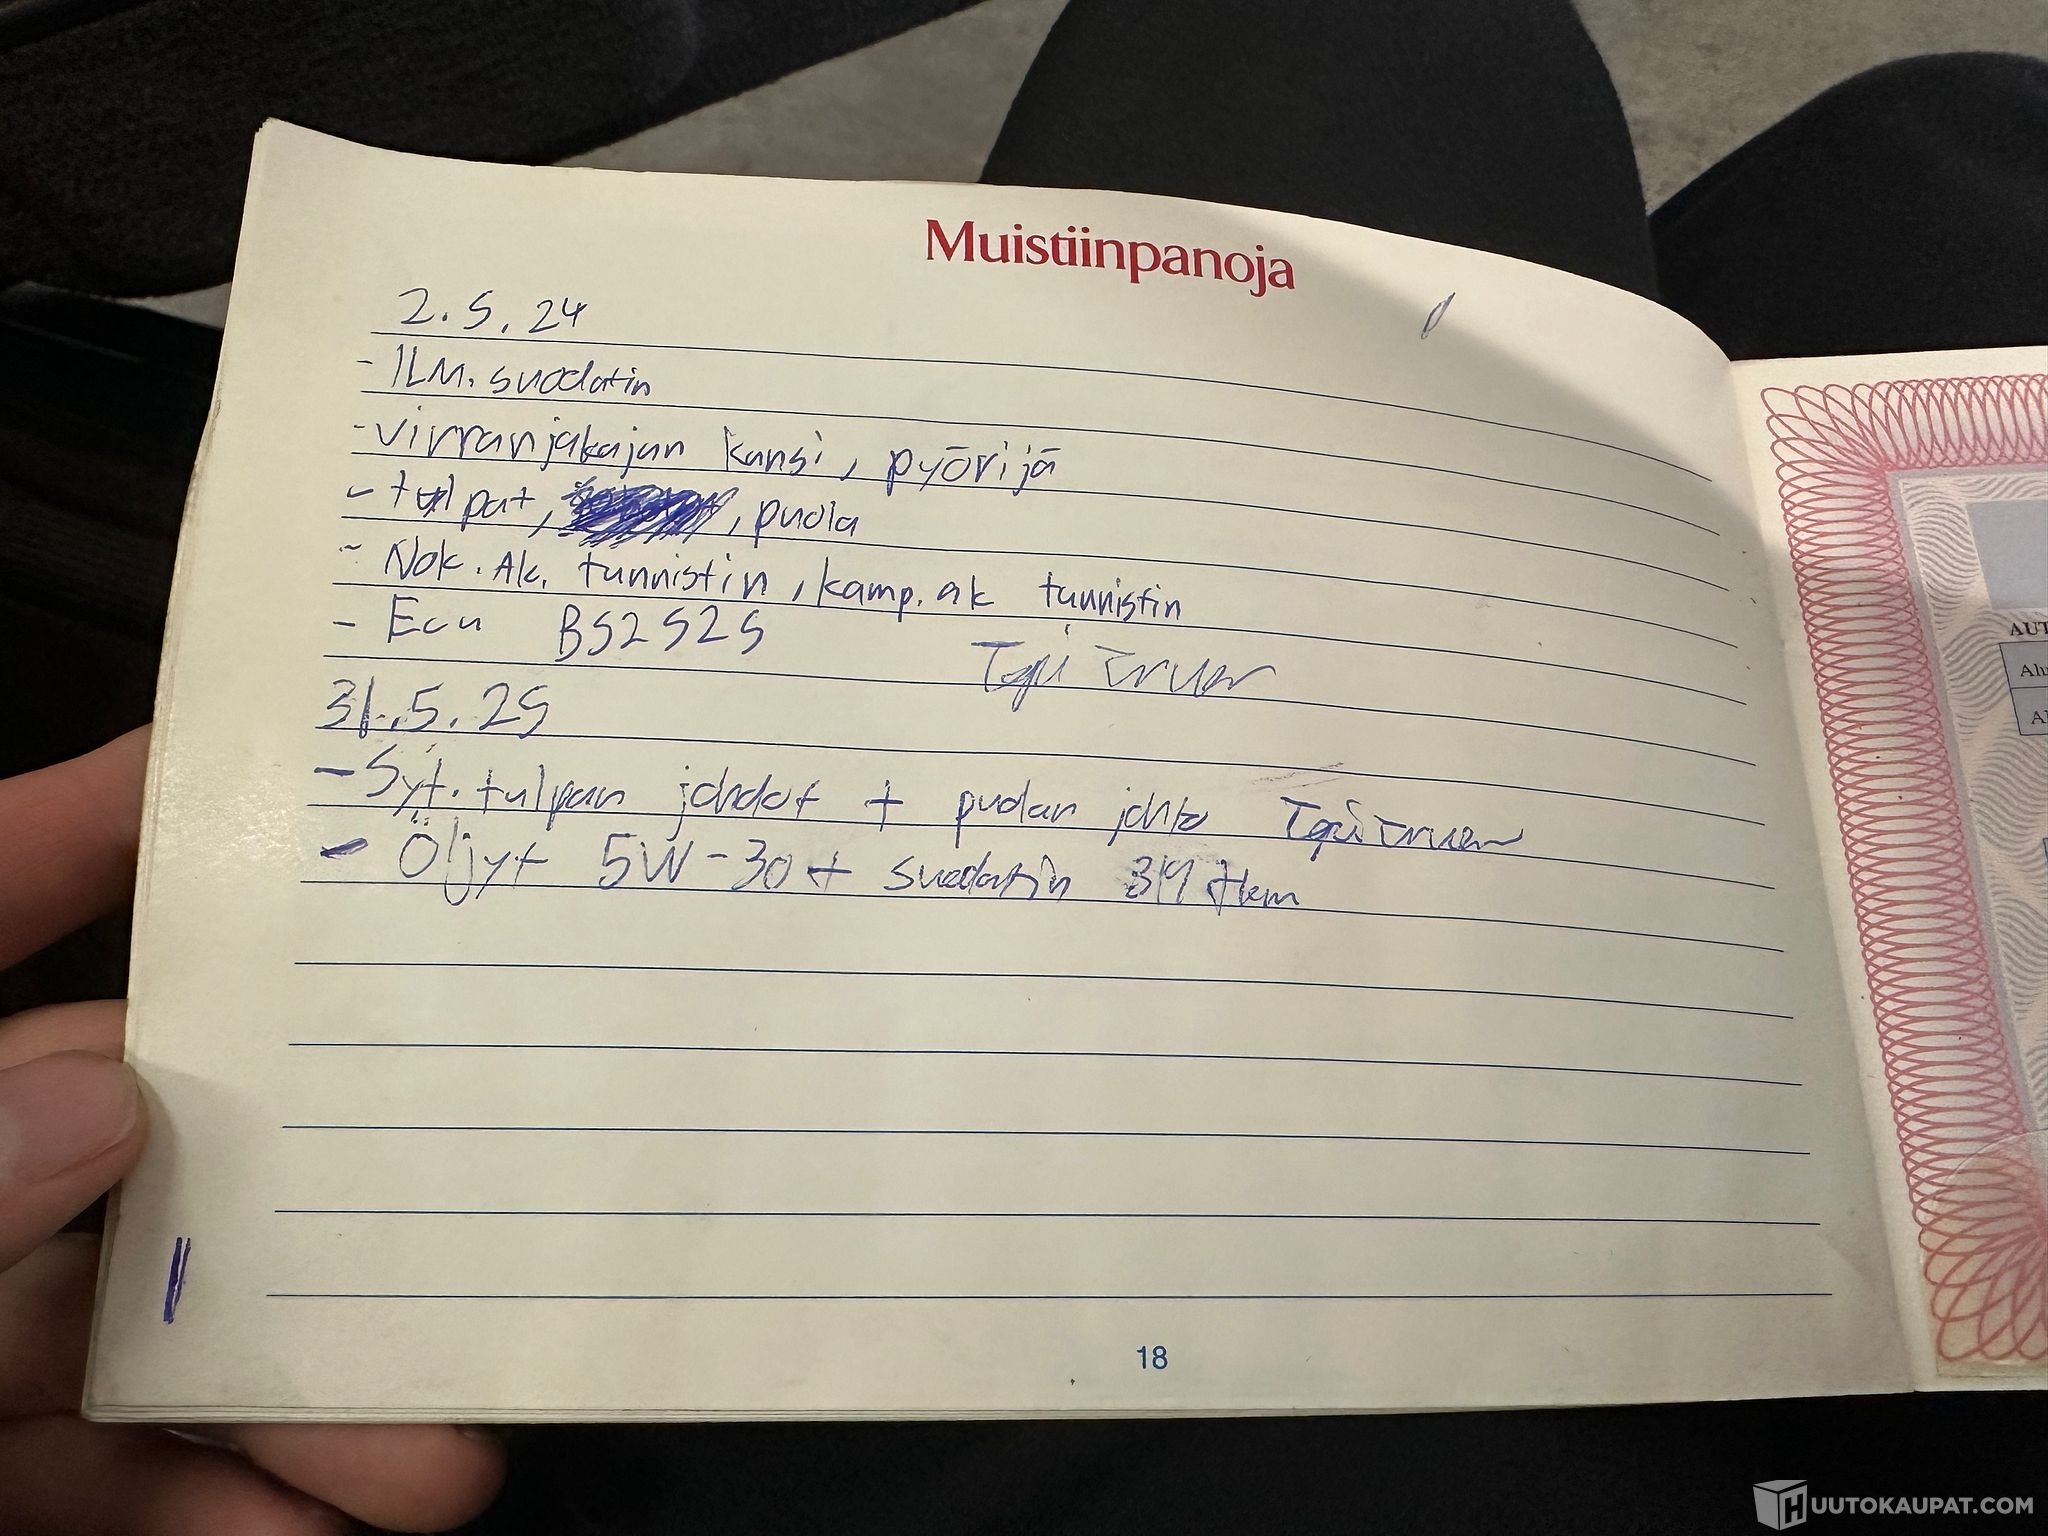 Muistiinpanoja
2.5.24
- ILM. suodatin
- virranjakajan kansi, pyörijä
- tulpat, , puola
- Nok. Ak. tunnistin, kamp. ak tunnistin
- Ecu BS2525
31.5.25
- Syt. tulpan johdot + puolan johto
- Öljyt 5W-30 + suodatin 319 tkm
18
AUT
HUUTOKAUPAT.COM